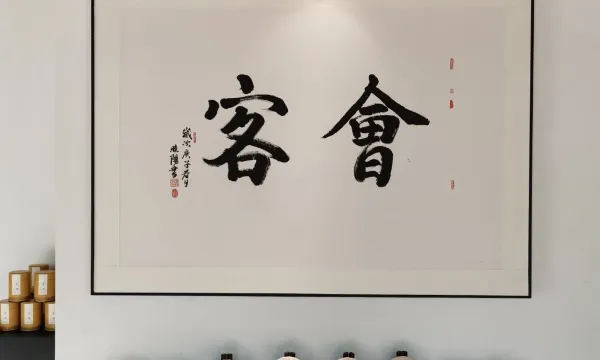 會客
歲次庚子春月